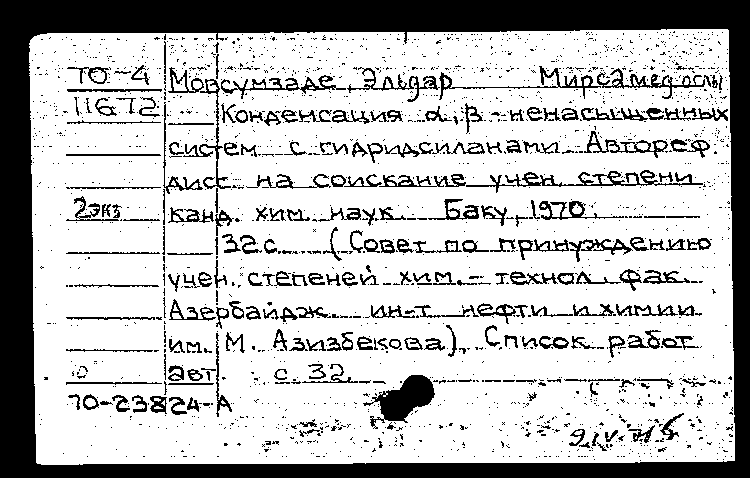 70-4 Мовсумзаде, Эльдар Мирсамед оглы
11672 Конденсация α, β - ненасыщенных
систем с гидридсиланами. Автореф
дисс. на соискание учен. степени
2экз канд. хим. наук. Баку, 1970.
32 с. (Совет по принуждению
учен. степеней хим. - технол. фак.
Азербайдж. ин-т нефти и химии
им. М. Азизбекова). Список работ
авт. с. 32.
70-23824-А